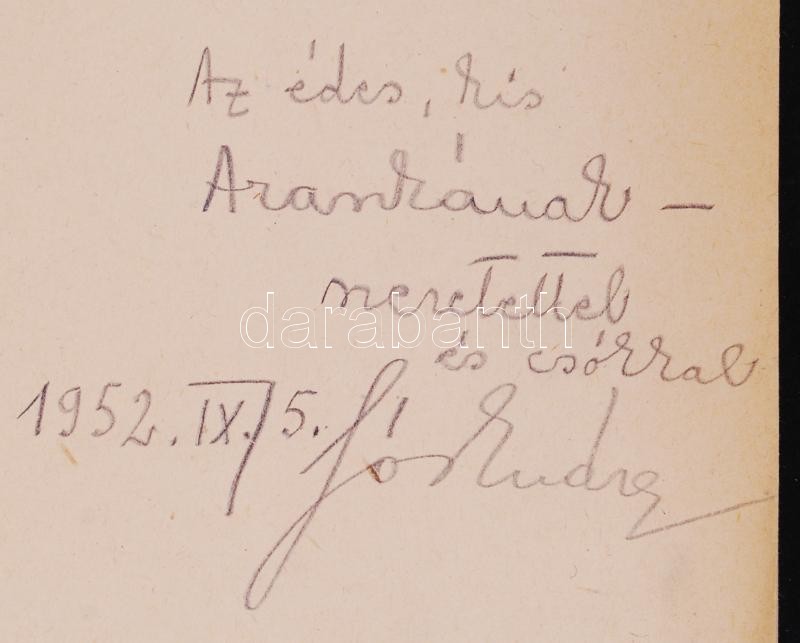 Az édes, kis
Arankának —
szeretettel
és csókkal
1952. IX/5. Jós Endre
darabanth